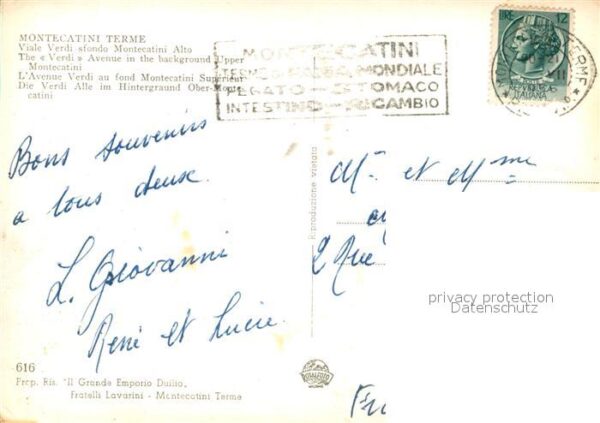 MONTECATINI TERME
Viale Verdi sfondo Montecatini Alto
The « Verdi » Avenue in the background Upper
Montecatini
L'Avenue Verdi au fond Montecatini Superieur
Die Verdi Alle im Hintergraund Ober-Monte
catini
MONTECATINI
TERME FAMA MONDIALE
FEGATO - STOMACO
INTESTINO - RICAMBIO
LIRE 12
REPVBBLICA
ITALIANA
Bons souvenirs
a tous deux.
L. Giovanni
René et Lucie.
Riproduzione vietata
Mr et Mme
2 Rue
privacy protection
Datenschutz
616
Prop. Ris. "Il Grande Emporio Duilio,
Fratelli Lavarini - Montecatini Terme